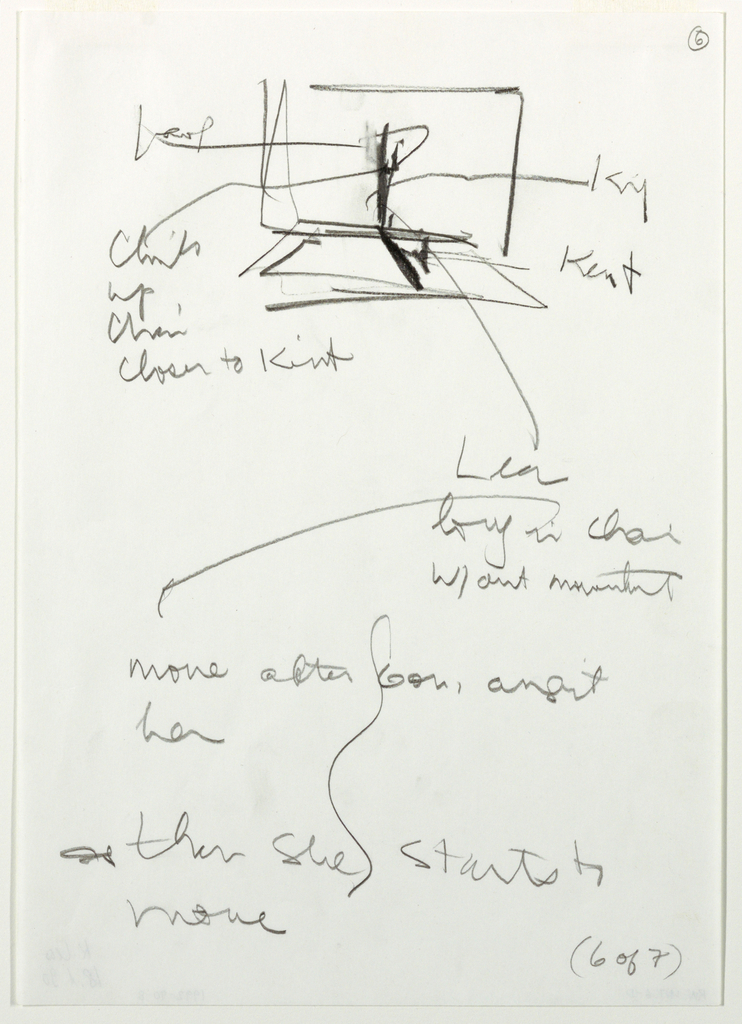 6
Kent
Climbs
up
Chair
closer to Kent
Lear
in chair
w/out movement
move after
her
then she starts to
move
(6 of 7)